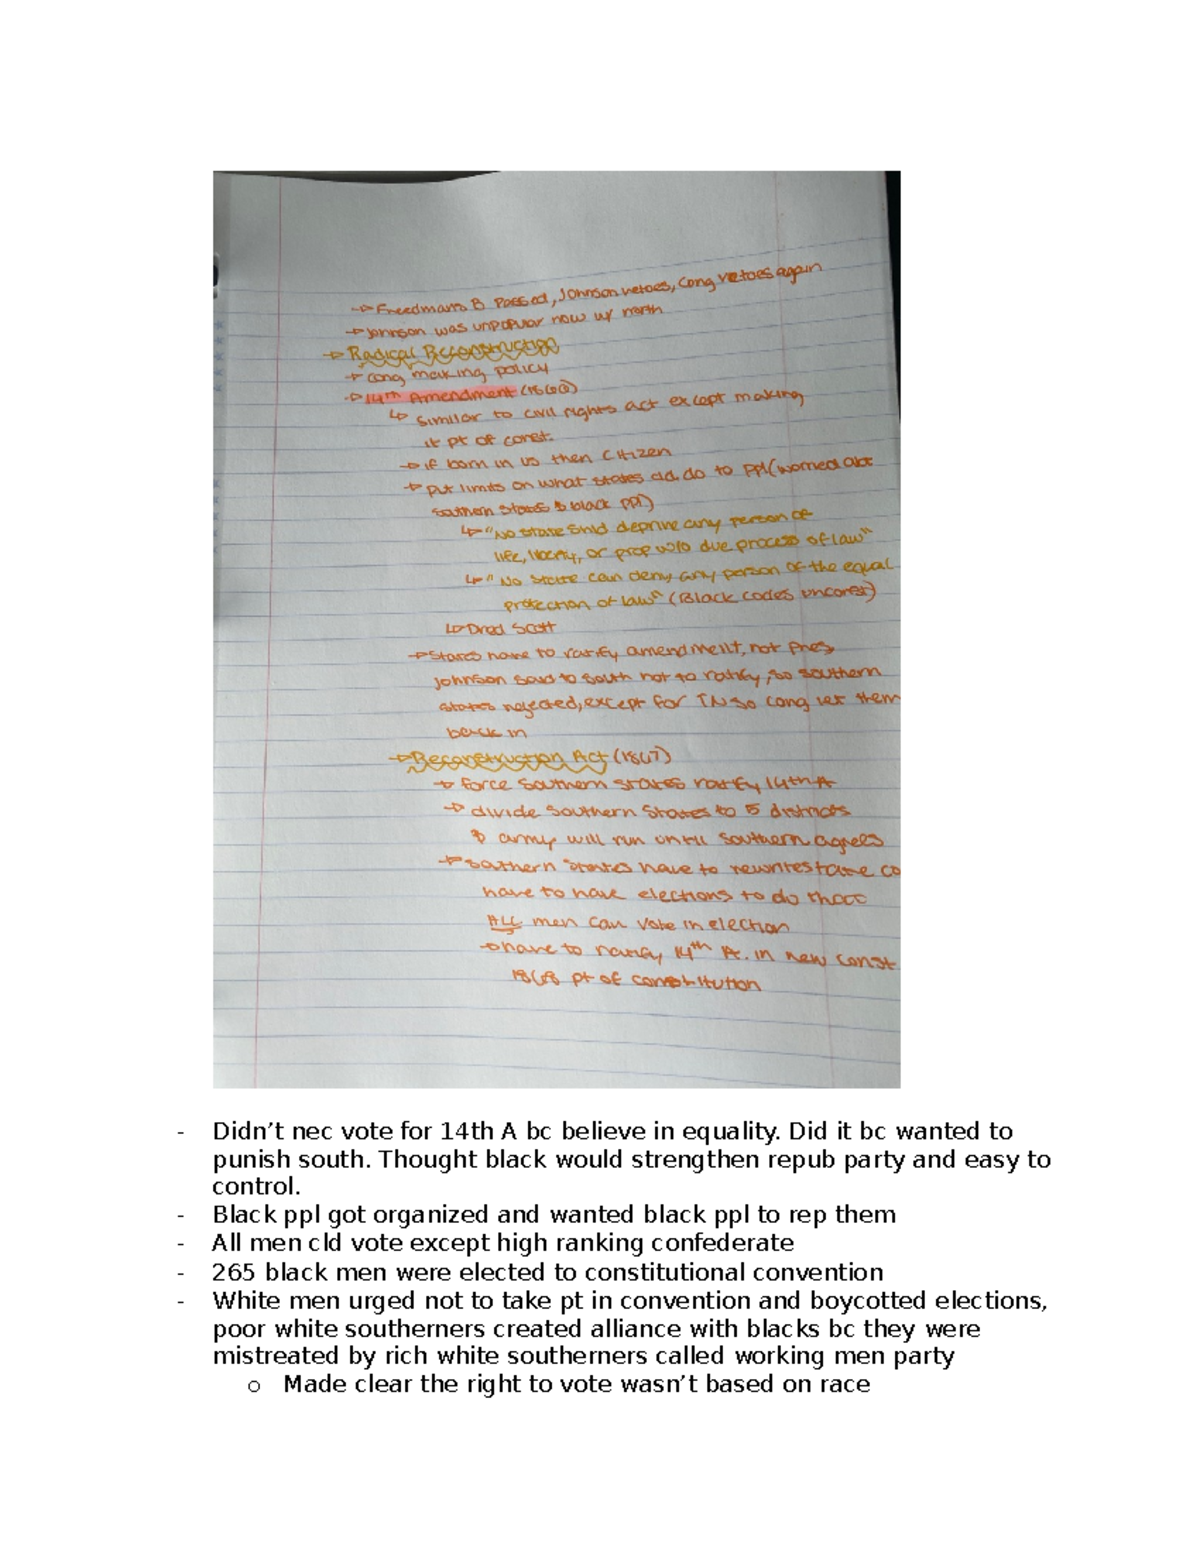 → Freedmans B Passed, Johnson vetoes, Cong vetoes again
→ Johnson was unpopular now w/ north
→ Radical Reconstruction
→ Cong making policy
→ 14th Amendment (1866)
↳ similar to civil rights act except making
it pt of const.
→ if born in US then citizen
→ put limits on what states cld do to ppl (worried abt
southern states & black ppl)
↳ "No state shld deprive any person of
life, liberty, or prop w/o due process of law"
↳ "No state can deny any person of the equal
protection of law" (Black codes unconst)
↳ Dred Scott
→ States have to ratify amendment, not pres,
Johnson said to south not to ratify, so southern
states rejected, except for TN so cong let them
back in
→ Reconstruction Act (1867)
→ force southern states ratify 14th A
→ divide southern states to 5 districts
& army will run until southern agrees
→ southern states have to rewrite state co
have to have elections to do that
ALL men can vote in election
→ have to ratify 14th A. in new const
1868 pt of constitution
- Didn’t nec vote for 14th A bc believe in equality. Did it bc wanted to
punish south. Thought black would strengthen repub party and easy to
control.
- Black ppl got organized and wanted black ppl to rep them
- All men cld vote except high ranking confederate
- 265 black men were elected to constitutional convention
- White men urged not to take pt in convention and boycotted elections,
poor white southerners created alliance with blacks bc they were
mistreated by rich white southerners called working men party
o Made clear the right to vote wasn’t based on race